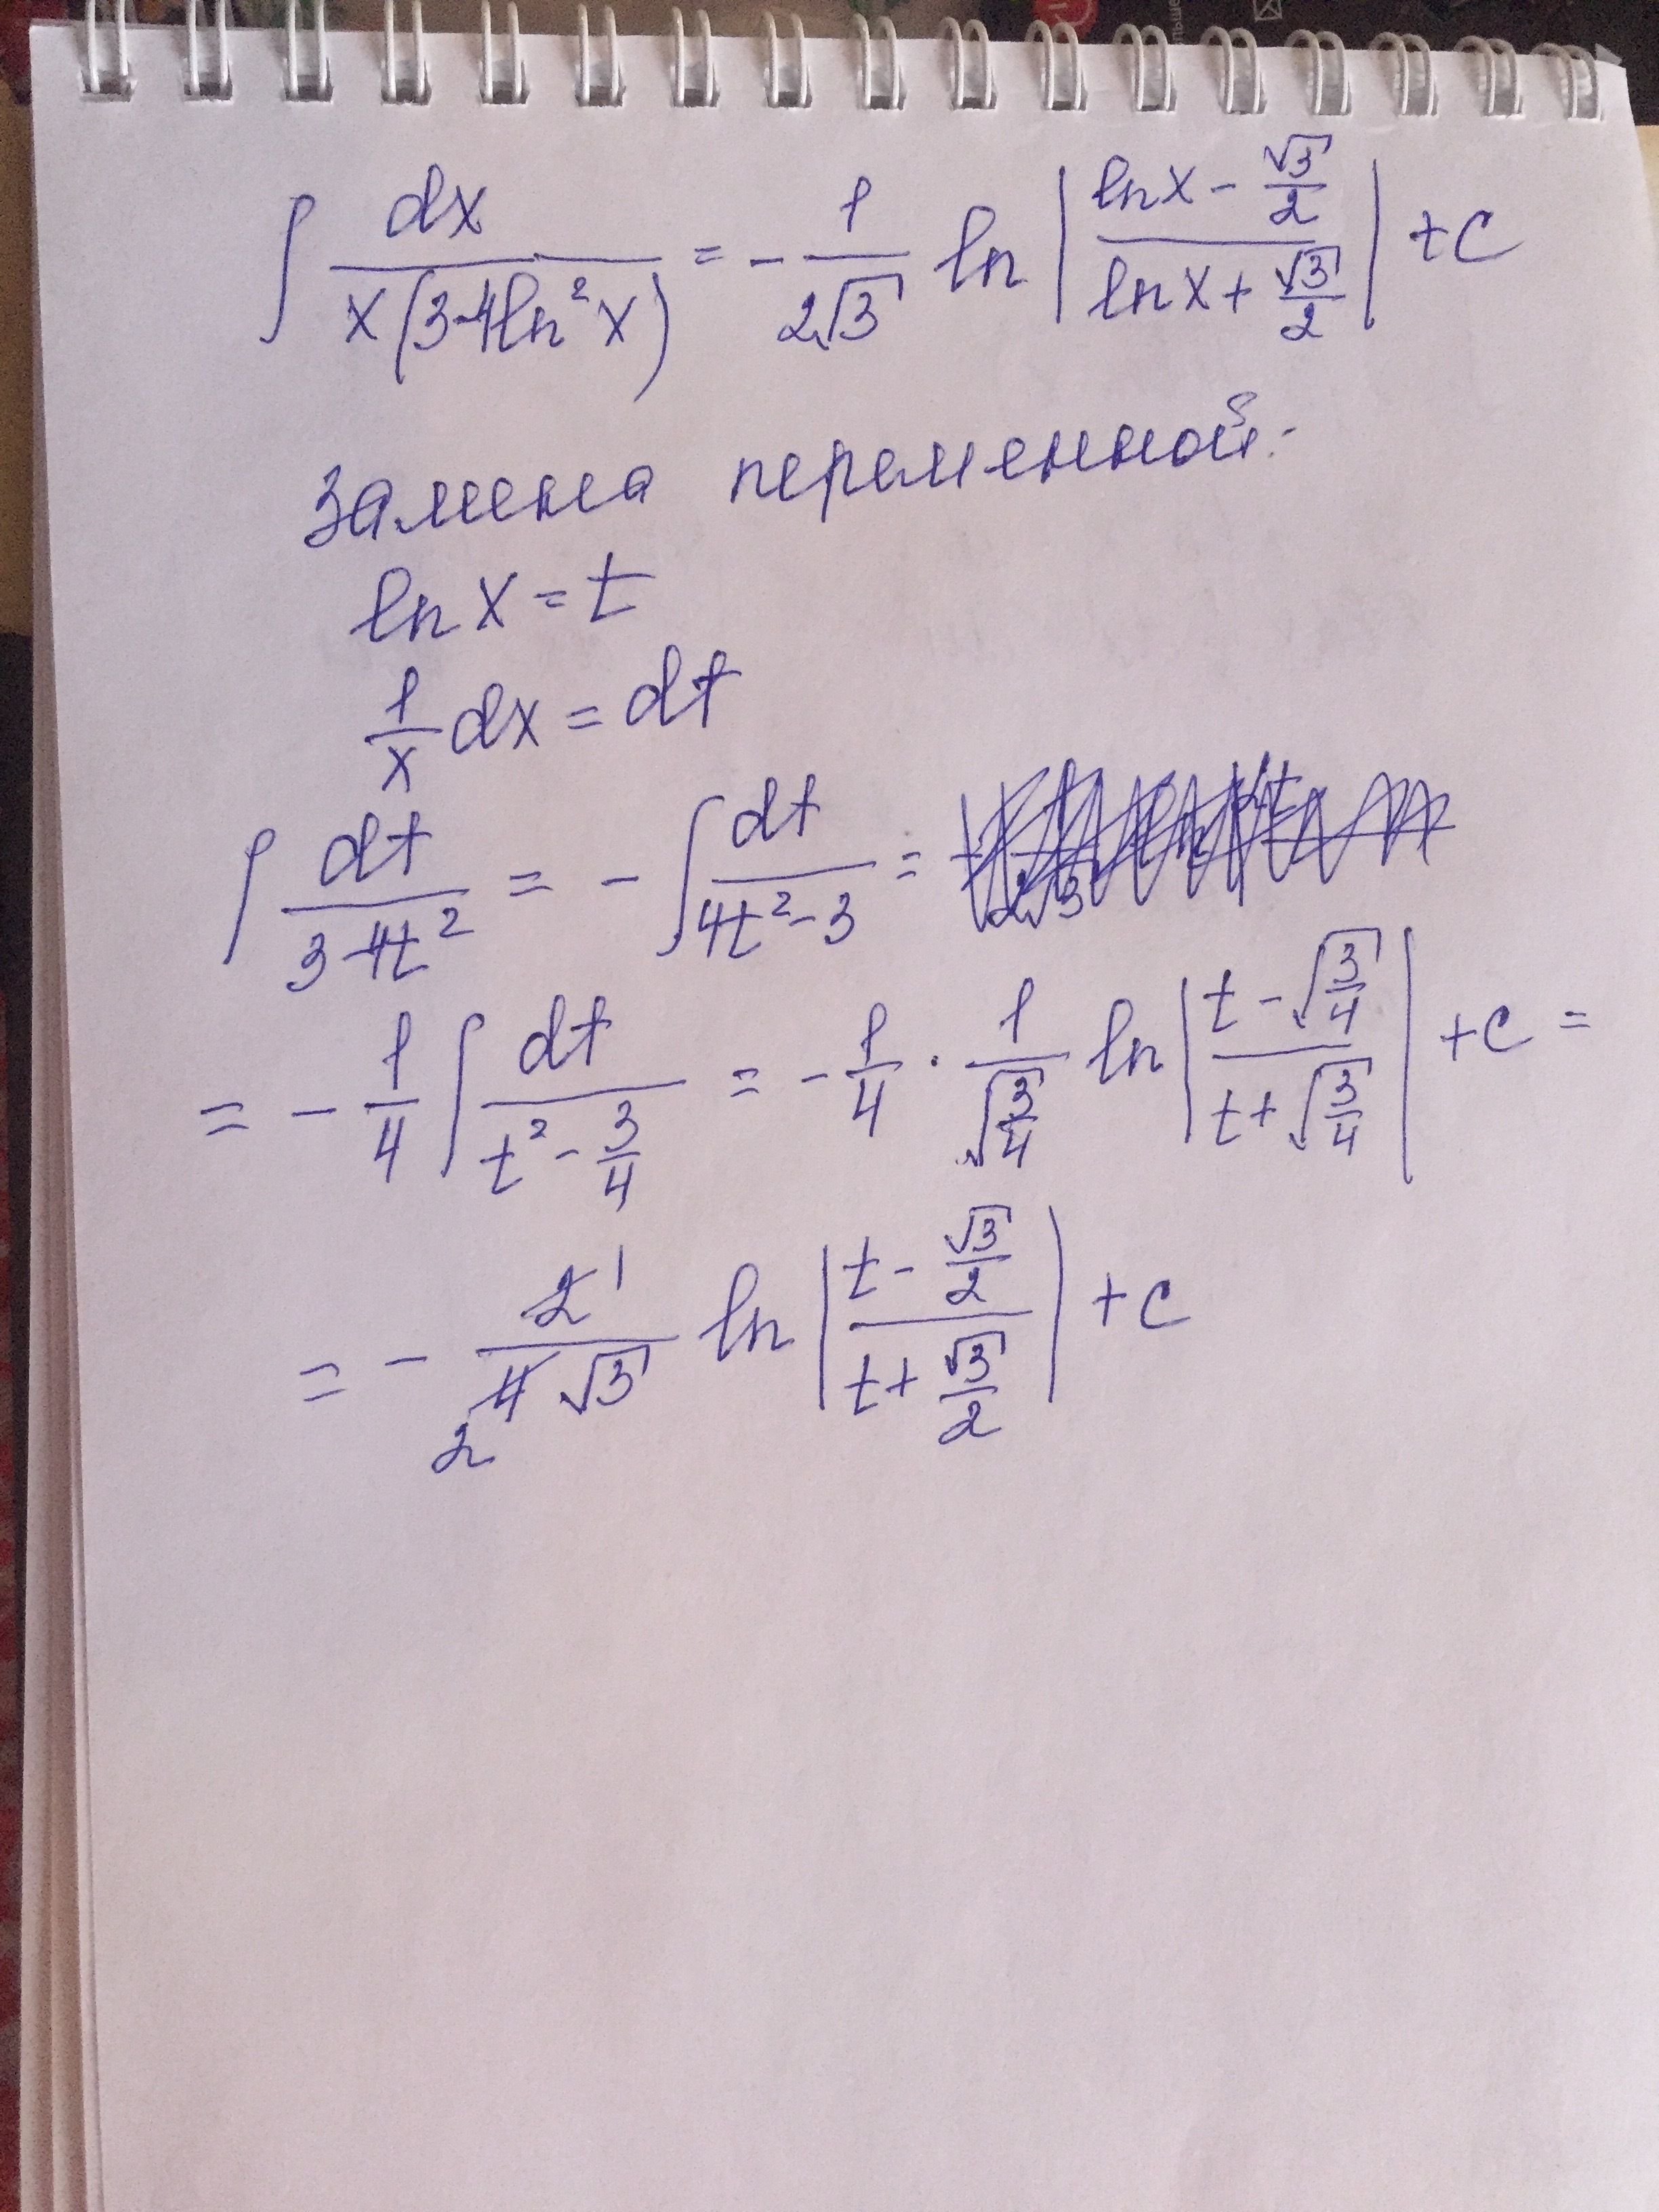 ∫ dx / x(3-4ln²x) = - 1 / 2√3 ln | lnx - √3/2 / lnx + √3/2 | + C
Замена переменной:
ln x = t
1/x dx = dt
∫ dt / 3-4t² = - ∫ dt / 4t²-3 =
= - 1/4 ∫ dt / t² - 3/4 = - 1/4 · 1 / √3/4 ln | t - √3/4 / t + √3/4 | + C =
= - 2 1 / 4 2 √3 ln | t - √3/2 / t + √3/2 | + C